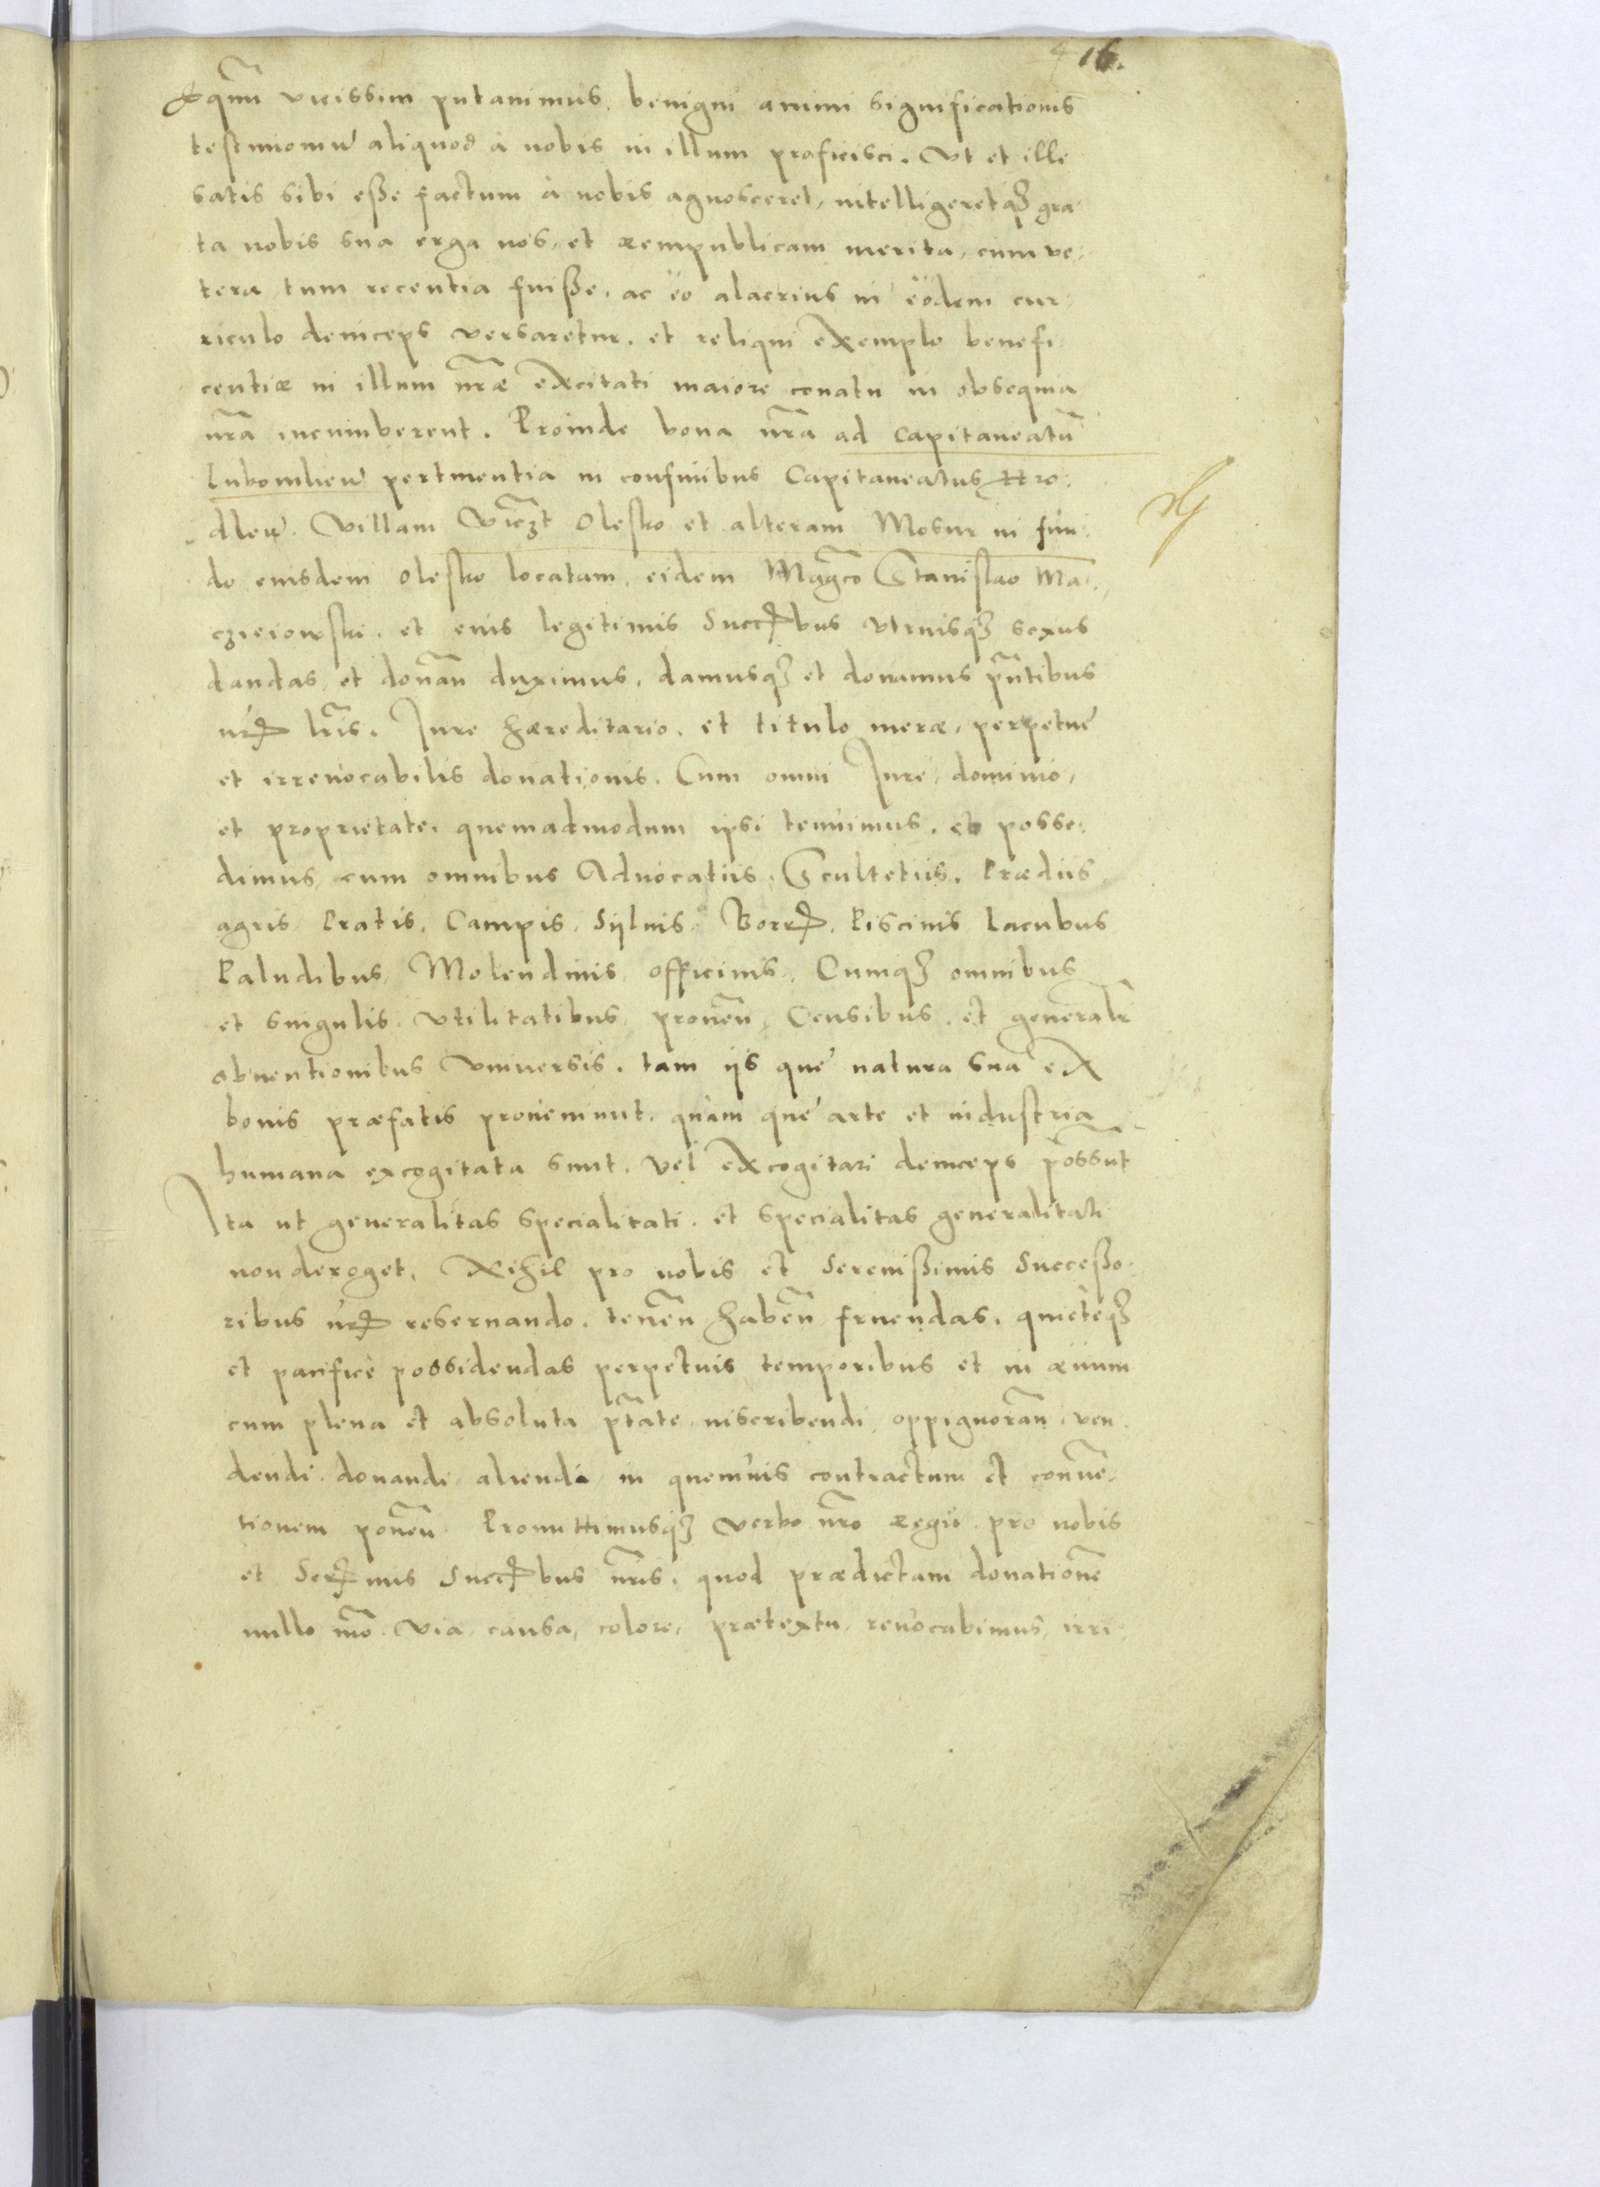 416.
Æquum vicissim putavimus, benigni animi significationis
testimoniũ aliquod à nobis in illum proficisci. Vt et ille
satis sibi eße factum à nobis agnosceret, intelligeretq3 gra-
ta nobis sua erga nos, et Rempublicam merita, cum ve-
tera tum recentia fuiße, ac eo alacrius in eodem cur-
riculo deinceps versaretur, et reliqui exemplo benefi-
centiæ in illum nr̃æ excitati maiore conatu in obsequia
nr̃a incumberent. Proinde bona nr̃a ad Capitaneatũ
Lubomlien̄ pertinentia in confinibus Capitaneatus Hro-
dlen̄. Villam Olesko et alteram Mosur in fun-
do eiusdem Olesko locatam, eidem Mag̃co Stanislao Ma-
czieiowski, et eius legitimis Succ̃bus vtriusq3 sexus
dandas et donan̄ duximus, damusq3 et donamus pñtibus
nr̃ lr̃is. Iure hæreditario, et titulo meræ, perpetue
et irreuocabilis donationis. Cum omni Iure, dominio,
et proprietate, quemadmodum ipsi tenuimus, et posse-
dimus, cum omnibus Aduocatiis, Scultetiis, Prædiis,
agris Pratis, Campis, Syluis, Borr̃, Piscinis Lacubus
Paludibus, Molendinis officinis, Cumq3 omnibus
et singulis vtilitatibus prouen̄, Censibus, et generalr̃
obuentionibus vniuersis, tam iis que natura sua ex
bonis præfatis proueniunt, quàm que arte et industria
humana excogitata sunt, vel excogitari deinceps possũt
Ita ut generalitas specialitati, et specialitas generalitati
non deroget, Nihil pro nobis et Sereníßimis Succeßo-
ribus nr̃ reseruando, tenen̄ haben̄ fruendas, quieteq3
et pacifice possidendas perpetuis temporibus et in æuum
cum plena et absoluta ptãte inscribendi oppignoran̄, ven-
dendi, donandi, aliendi in quemuis contractum et conue-
tionem ponen̄. Promittimusq3 verbo nr̃o Regio pro nobis
et Ser̃mis Succ̃bus nr̃is, quod prædictam donationẽ
nullo mõ via, causa, colore, prætextu, reuocabimus, irri-